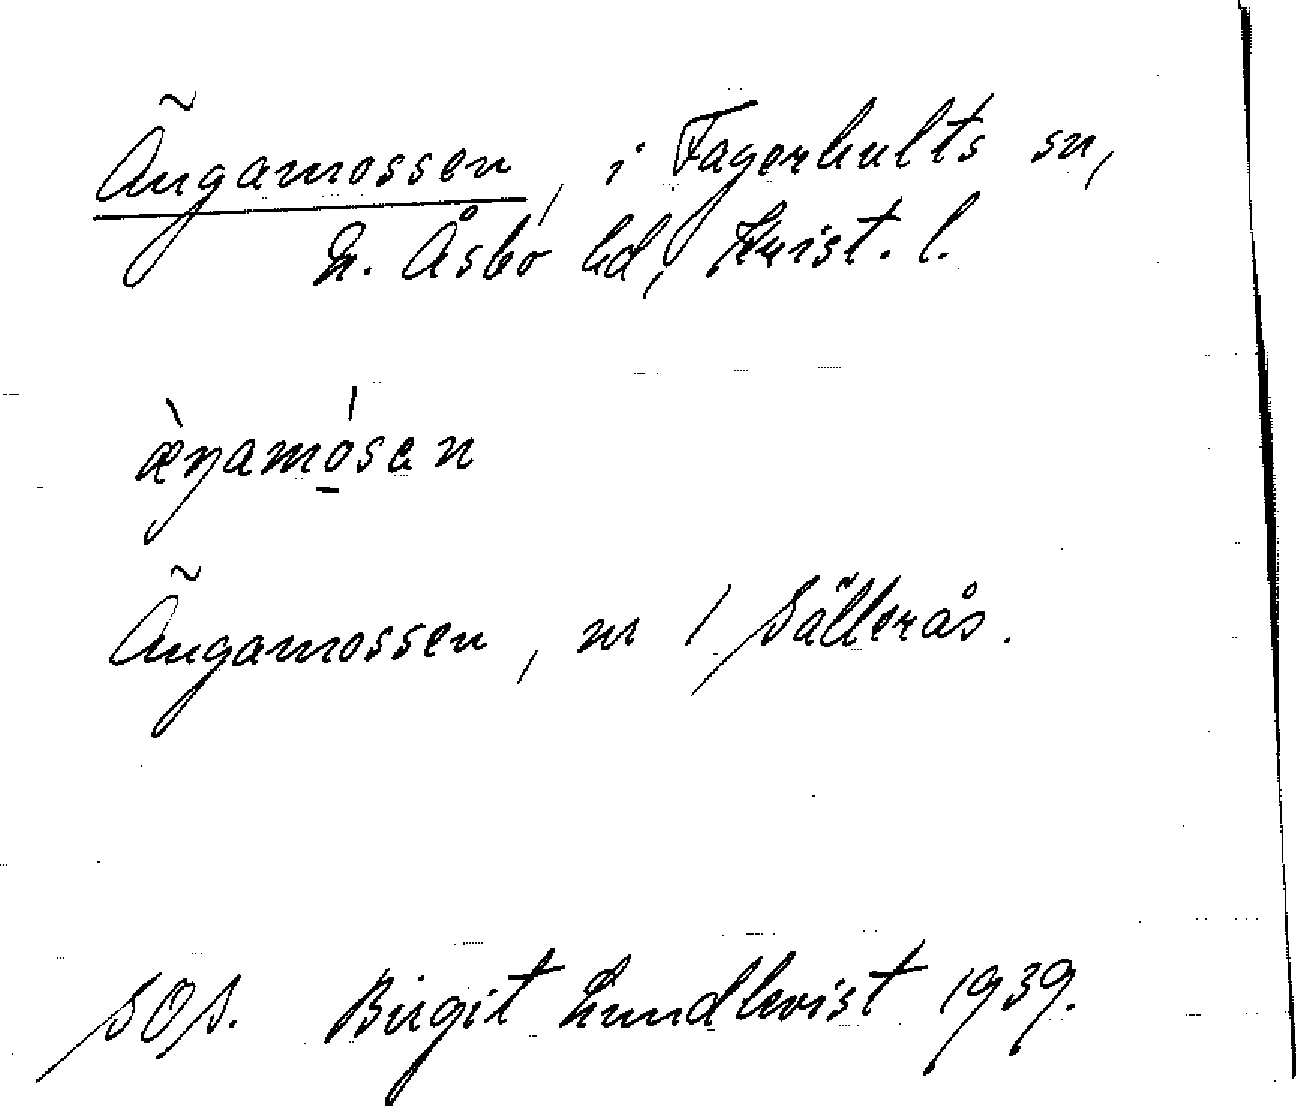 Ängamossen, i Fagerhults sn,
N. Åsbo hd, Krist. l.
æ̀ŋamó̠sen
Ängamossen, nr 1 Sällerås.
SOS. Birgit Lundkvist 1939.